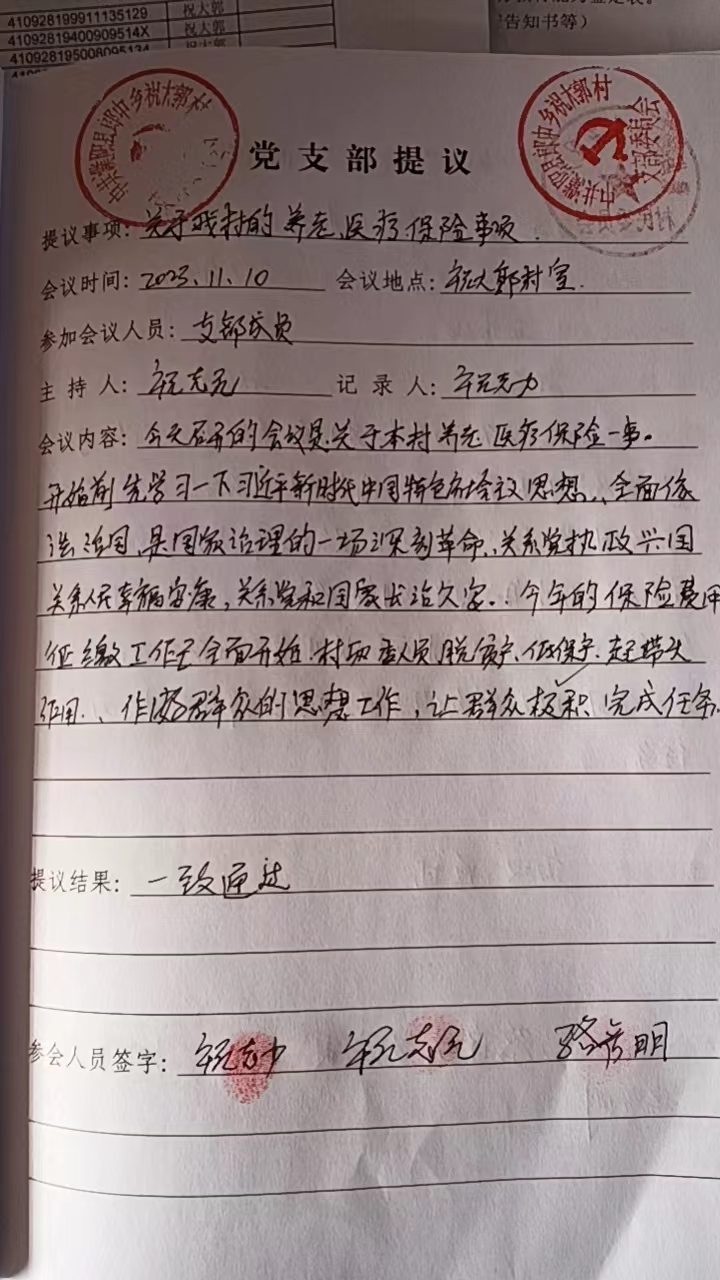 410928199911135129 祝大郭
41092819400909514X 祝大郭
410928195008095134 祝大郭
告知书等）
中共濮阳县郎中乡祝大郭村
中共濮阳县郎中乡祝大郭村支部委员会
党支部提议
提议事项：关于我村的养老、医疗保险事项.
会议时间：2023.11.10 会议地点：祝大郭村室.
参加会议人员：支部成员
主持人：祝志元 记录人：祝志力
会议内容：今天召开的会议是关于本村养老医疗保险一事。
开始前先学习一下习近平新时代中国特色社会主义思想、全面依
法治国，是国家治理的一场深刻革命、关系党执政兴国
关系人民幸福安康，关系党和国家长治久安。今年的保险费用
征缴工作已全面开始.村两委人员、脱贫户、低保户.起带头
作用、作好群众的思想工作，让群众极积完成任务.
提议结果：一致通过
参会人员签字： 祝志力 祝志元 骆彦明